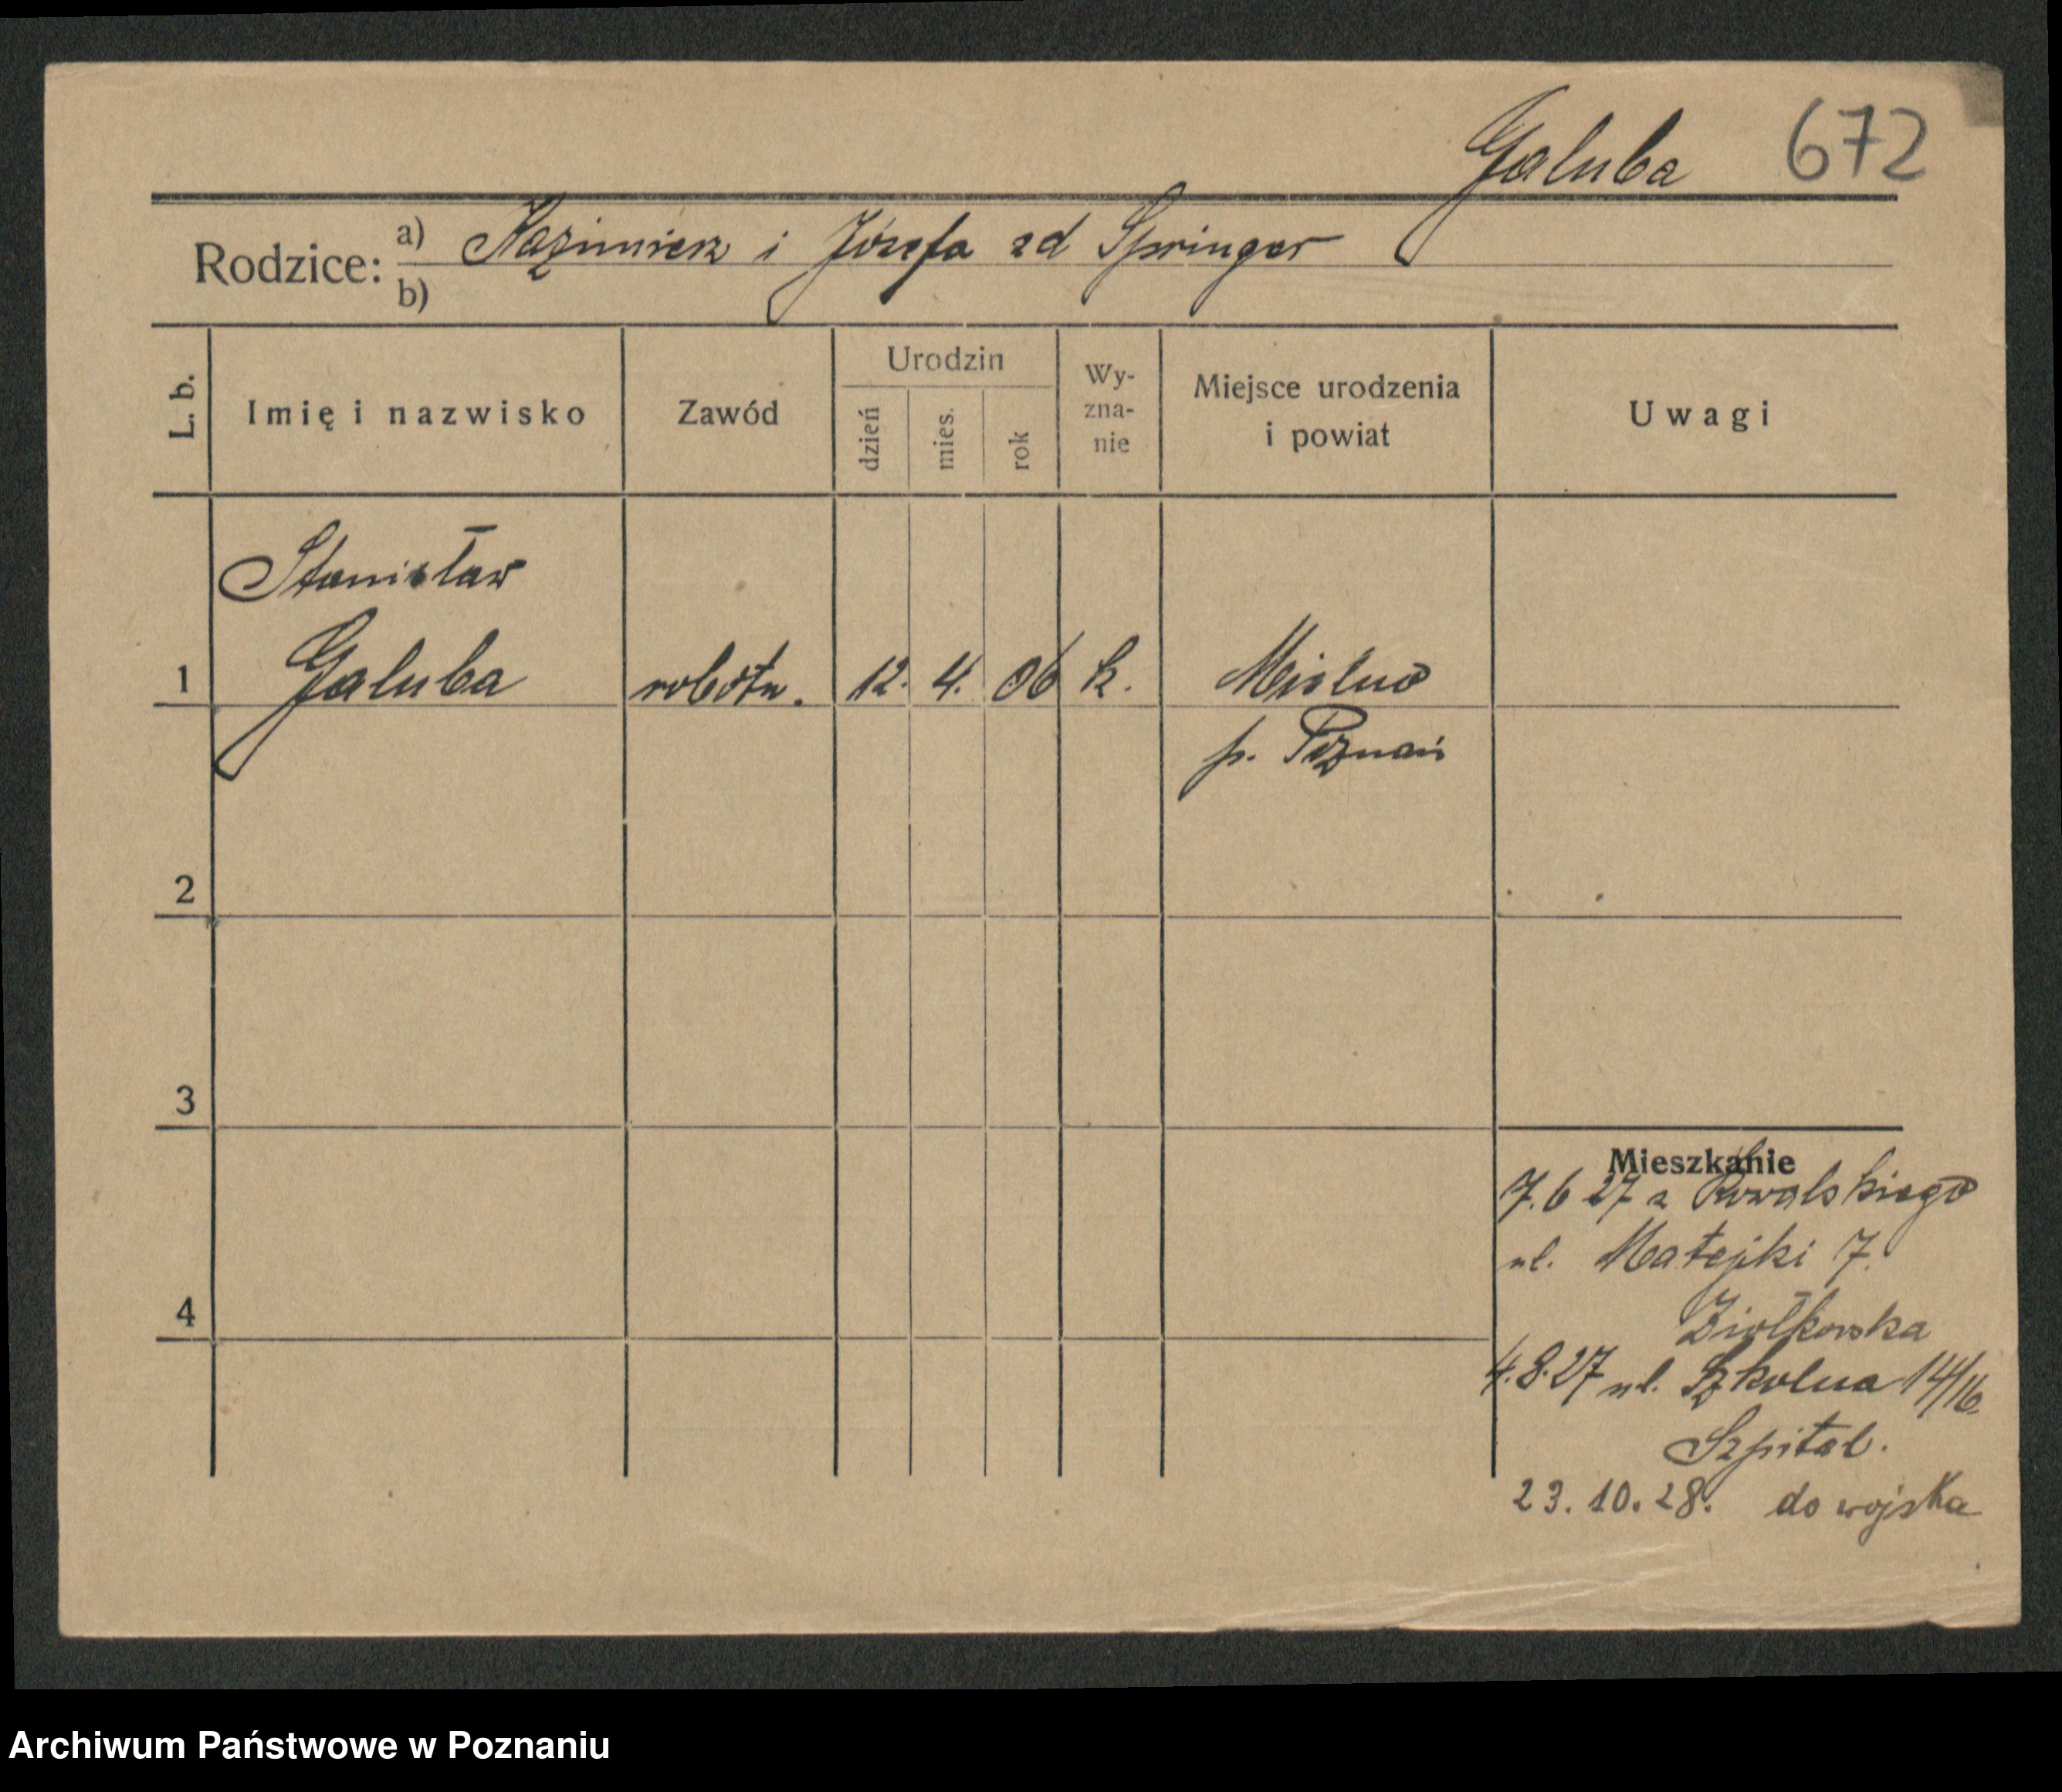 Galuba 672
Rodzice: a) Kazimierz i Józefa zd Springer
b)
L. b. Imię i nazwisko Zawód Urodzin dzień mies. rok Wy-zna-nie Miejsce urodzenia i powiat Uwagi
Stanisław
1 Galuba robotn. 12. 4. 06 k. Mielno
p. Poznań
2
3
Mieszkanie
7.6 27 z Kowalskiego
ul. Matejki 7.
4 Ziołkowska
4.8.27 ul. Szkolna 14/16.
Szpital.
23.10.28. do wojska
Archiwum Państwowe w Poznaniu